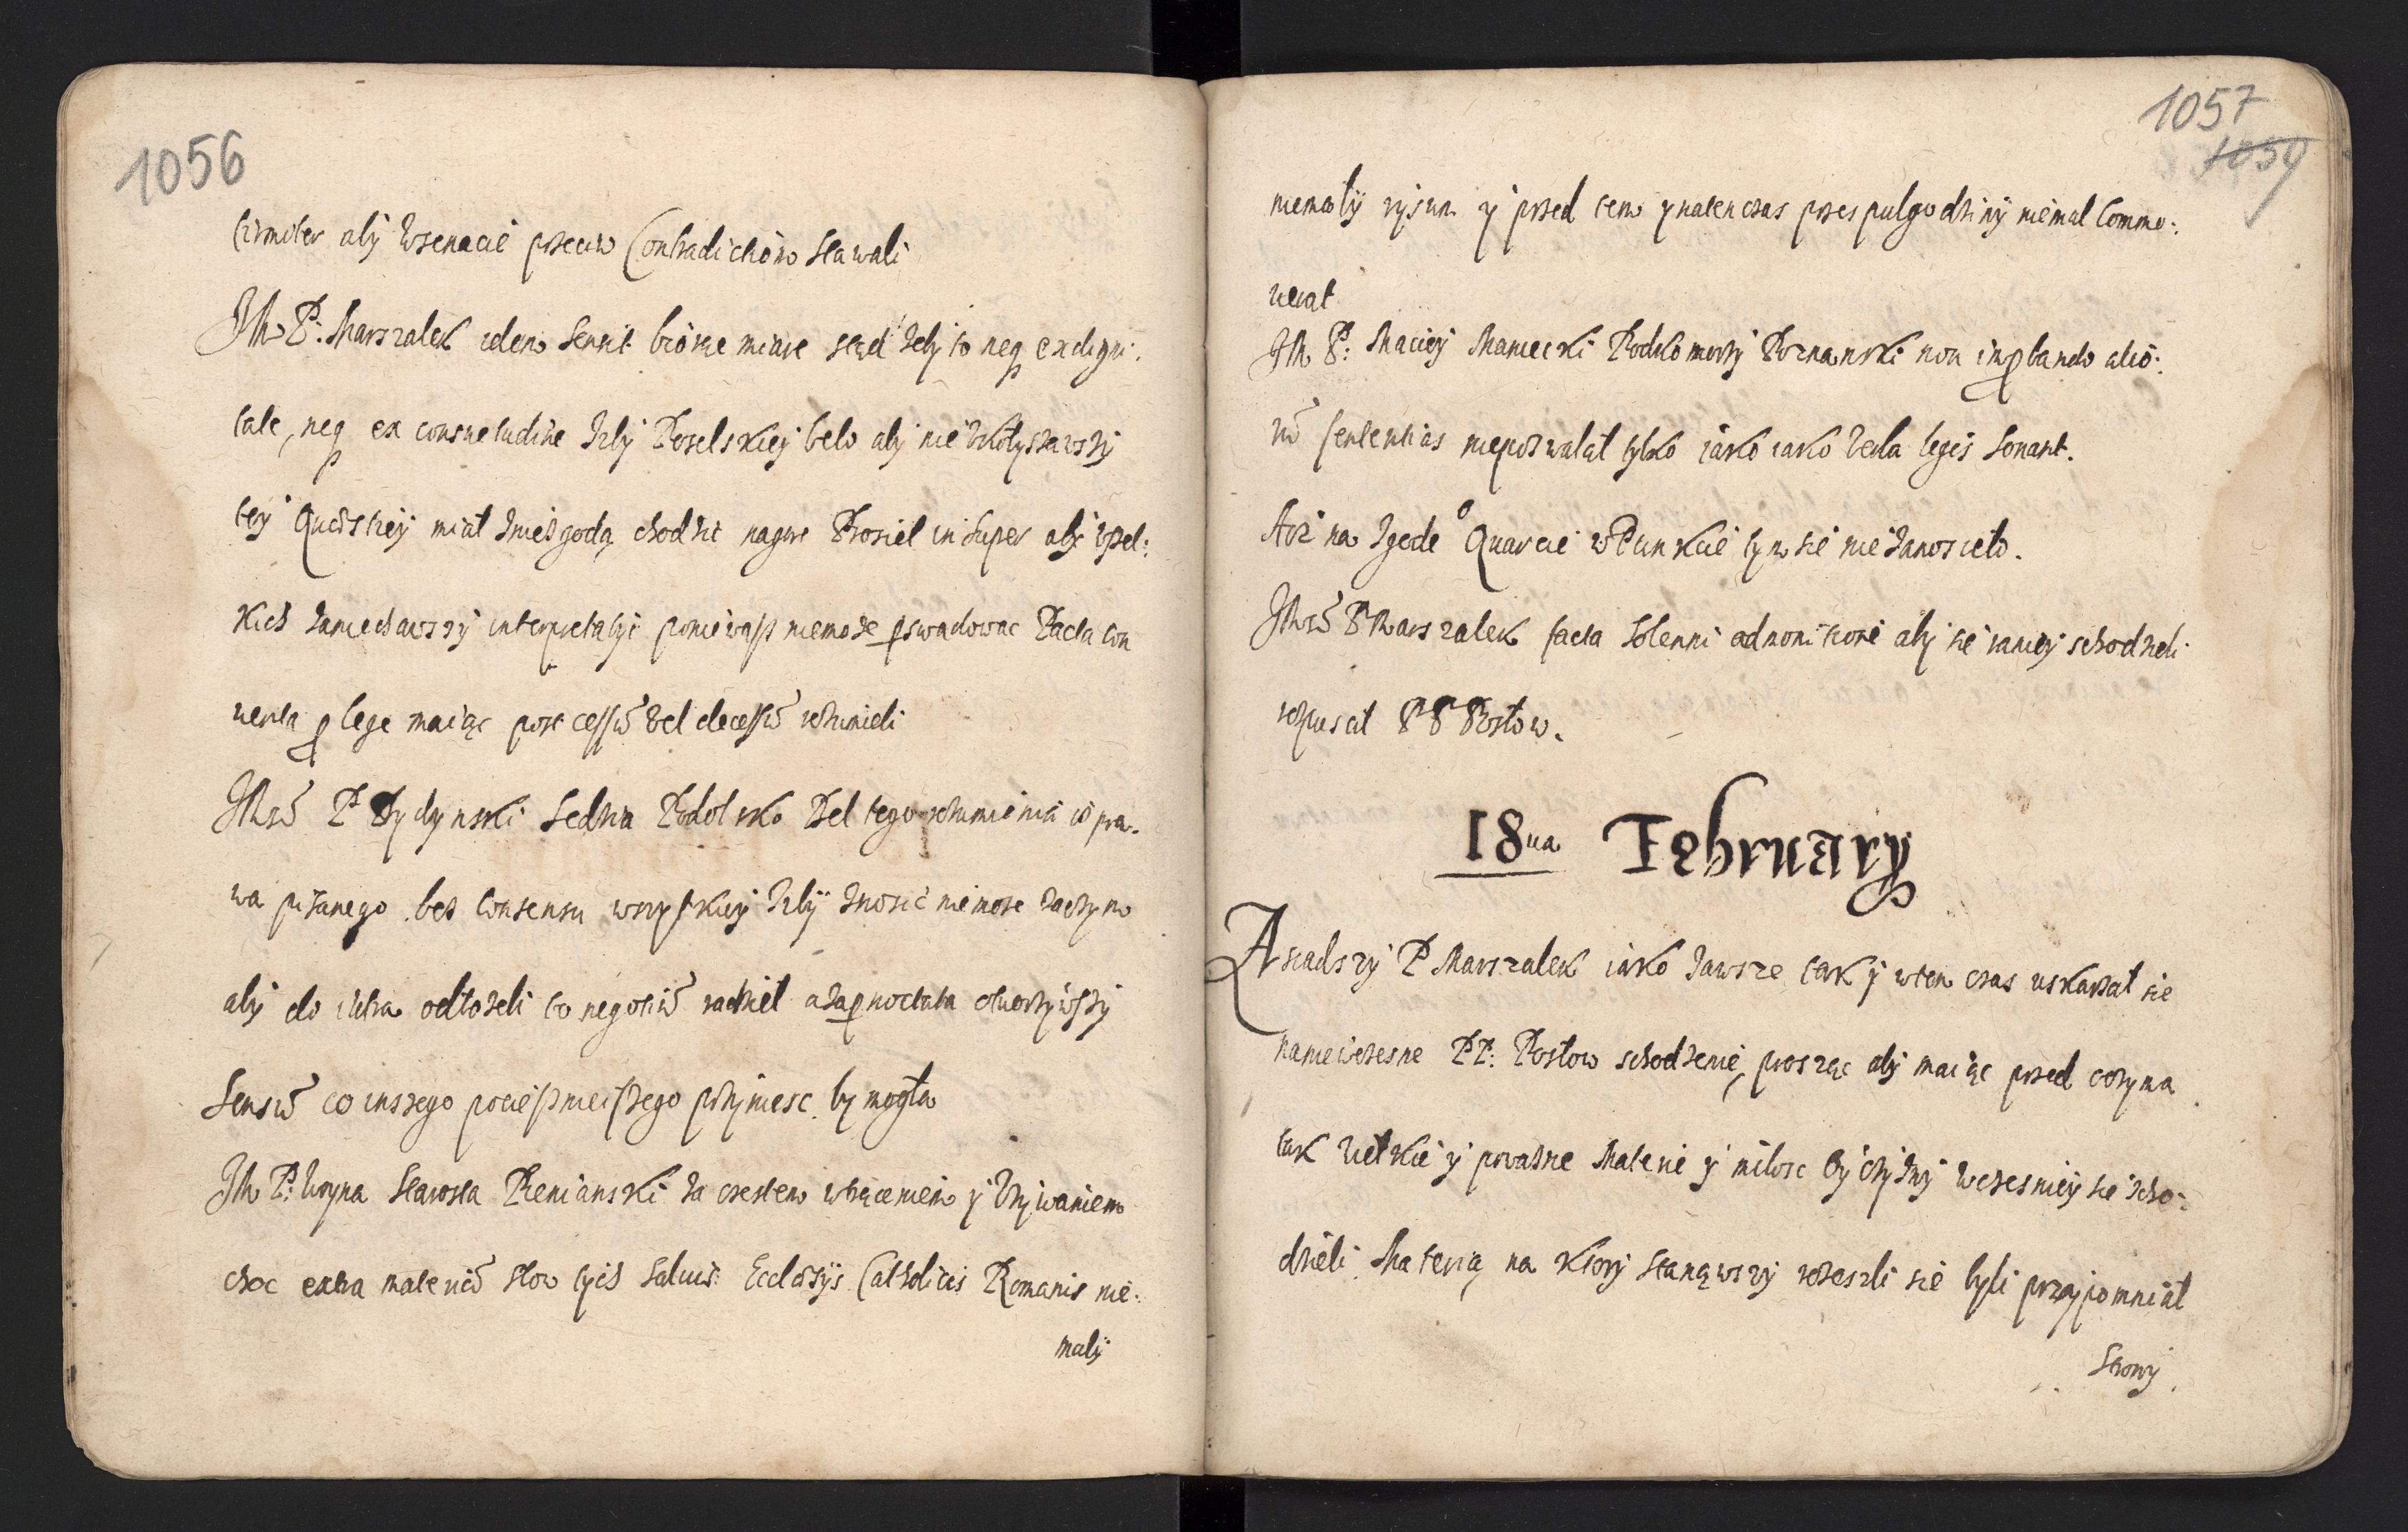 1056
firmiter aby w senacie przeciw Contradictiów stawali
JM P: Marszalek idem sensit biorąc miare stąd żeby to neq ex digni:
tate, neq ex consuetudine Izby Poselskiey belo aby nie
tey Quæstiey miał zniezgodą chodzić nagure Prosieł insuper aby wszel:
kich zaniechawszy interpretatyi poniewasz niemoże pswadowac Pacta con
uenta p lege maiąc post cessũ vel decessũ rozumieli
JMsc̃ P Dydynski Sedzia Podolsko Bel tego rozumienia iż pra-
wa pisanego bez Consensu wszystkiey Izby znosić niemoże zaczym
aby do iutra odłożeli to negotiũ radzieł azapnoctata otworzywszy
Sensũ co inszego pociesznieiszego przyniesc by mogła
JM P: Woyna Starosta Pienianski za czestem wtrąceniem y Używaniem
choc extra materiã słow tych Saluis Ecclesiys Catholicis Romanis nie:
mały
1057
1059
niemały rysum y przed tem ynatenczas przes pulgodziny niemal Commo:
uerat
JM P: Maciey Maniecki Podkomorzy Poznanski non inpbando alio:
rũ sententias niepozwalał tylko iáko iako verba legis sonant.
Aże na zgode o Quarcie w Punkcie tym sie nie zanosieło.
JMsc̃ P Marszalek facta solenni admonitione aby sie raniey schodzieli
rozpuscił P P Posłow.
18ua February
Asiadszy P Marszalek iako zawsze tak y wten czas uskarżał sie
nanieiwczesne PP: Posłow schodzenie, prosząc aby maiąc przed oczyma
tak Wielkie y poważne Materie y miłosc Oyczyzny wczesniey sie scho:
dzieli Materią na ktory stanąwszy rozeszli sie byli przypomniał
Strony